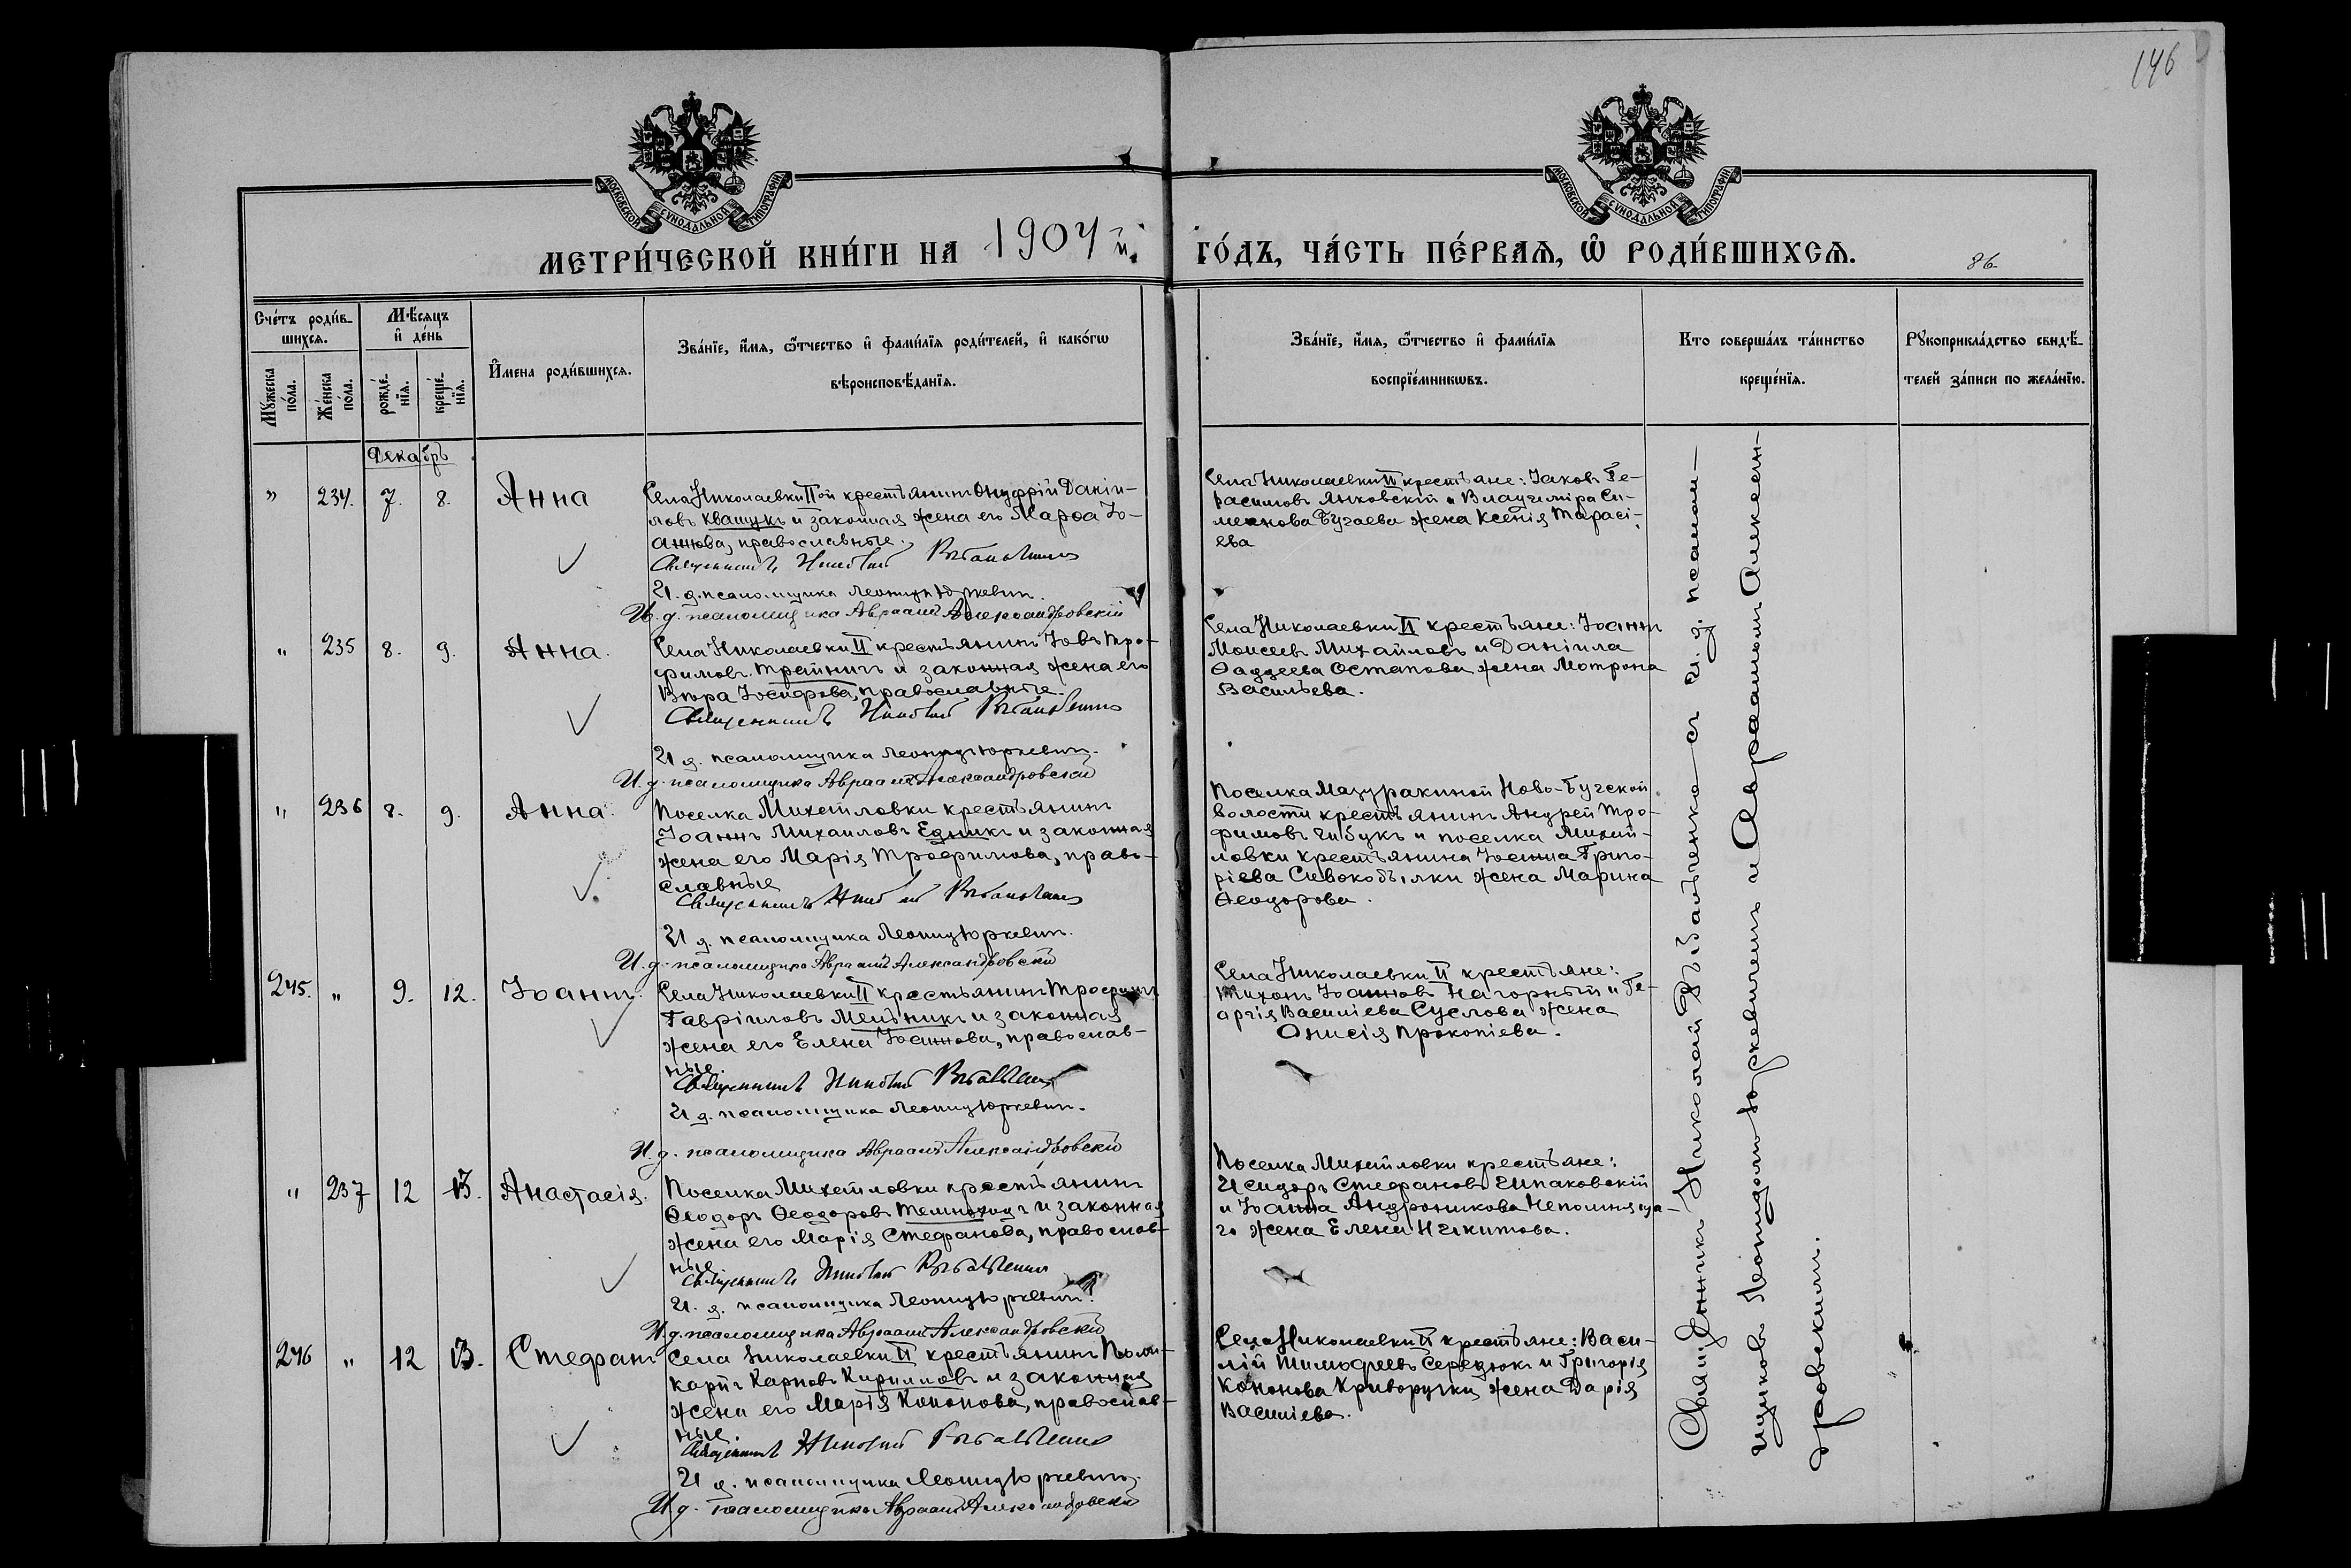 146
МОСКОВСКОЙ СѴНОДАЛЬНОЙ ТИПОГРАФІИ
МОСКОВСКОЙ СѴНОДАЛЬНОЙ ТИПОГРАФІИ
МЕТРИ́ЧЕСКОЙ КНИ́ГИ НА 1904 й. ГО́ДЪ, ЧА́СТЬ ПЕ́РВАѦ, Ѿ РОДИ́ВШИХСѦ.
86.
Сче́тъ роди́в-
шихсѧ.
Мꙋ́жеска по́ла.
Же́нска по́ла.
Мѣ́сѧцъ
и҆ де́нь
рожде́-
нїѧ.
креще́-
нїѧ.
И҆мена роди́вшихсѧ.
Зва́нїе, и҆́мѧ, ѻ҆́тчество и҆ фами́лїѧ роди́телей, и҆ како́гѡ
вѣроисповѣ́данїѧ.
Зва́нїе, и҆́мѧ, ѻ҆́тчество и҆ фами́лїѧ
воспрїе́мникѡвъ.
Кто соверша́лъ та́инство
креще́нїѧ.
Рꙋкоприкла́дство свидѣ́-
телей за́писи по жела́нїю.
Декабрь
" 234. 7. 8. Анна
Села Николаевки II ой крестьянинъ Онуфрій Даніи-
ловъ Квашукъ и законная жена его Марѳа Іо-
аннова, православные.
Священникъ Николай
И. д. псаломщика Леонидъ Юркевичъ.
И. д. псаломщика Авраамъ Александровскій
Села Николаевки II крестьяне: Іаковъ Ге-
расимовъ Янковскій и Владиміра Си-
меонова Бугаева жена Ксенія Тарасі-
ева
" 235 8. 9. Анна.
Села Николаевки II крестьянинъ Іовъ Тро-
фимовъ Трейничъ и законная жена его
Вѣра Іосифова, православные.
Священникъ Николай
И д. псаломщика Леонидъ Юркевичъ.
И. д. псаломщика Авраамъ Александровскій
Села Николаевки II крестьяне: Іоаннъ
Моисеевъ Михайловъ и Даніила
Фаддеева Остапова жена Мотрона
Васильева.
" 236 8. 9. Анна.
Поселка Михайловки крестьянинъ
Іоаннъ Михаиловъ Едникъ и законная
жена его Марія Трофимова, право-
славные
Священникъ Николай
И д. псаломщика Леонидъ Юркевичъ.
И. д. псаломщика Авраамъ Александровскій
Поселка Мазуракиной Ново-Бугской
волости крестьянинъ Андрей Тро-
фимовъ Чибукъ и поселка Михай-
ловки крестьянина Іоанна Григо-
ріева Сивокобылки жена Марина
Ѳеодорова.
245. " 9. 12. Іоаннъ.
Села Николаевки II крестьянинъ Трофимъ
Гавріиловъ Мельникъ и законная
жена его Елена Іоаннова, православ-
ные.
Священникъ Николай
И д. псаломщика Леонидъ Юркевичъ.
И. д. псаломщика Авраамъ Александровскій
Села Николаевки II крестьяне:
Тихонъ Іоанновъ Нагорный и Ге-
оргія Василіева Суслова жена
Онисія Прокопіева.
" 237 12 13. Анастасія.
Поселка Михайловки крестьянинъ
Ѳеодоръ Ѳеодоровъ Темноходъ и законная
жена его Марія Стефанова, православ-
ные
Священникъ Николай
И. д. псаломщика Леонидъ Юркевичъ.
И. д. псаломщика Авраамъ Александровскій
Поселка Михайловки крестьяне:
Исидоръ Стефановъ Шпаковскій
и Іоанна Андроникова Непомняща-
го жена Елена Никитова.
246 " 12 13. Стефанъ
Села Николаевки II крестьянинъ Поли-
карпъ Карповъ Кирилловъ и законная
жена его Марія Кононова, православ-
ные.
Священникъ Николай
И д. псаломщика Леонидъ Юркевичъ.
И д. псаломщика Авраамъ Александровскій
Села Николаевки II крестьяне: Васи-
лій Тимофеевъ Середюкъ и Григорія
Кононова Криворучки жена Дарія
Василіева.
Священникъ Николай Рыбальченко съ и. д. псалом-
щиковъ Леонидомъ Юркевичемъ и Авраамомъ Александ-
ровскимъ.